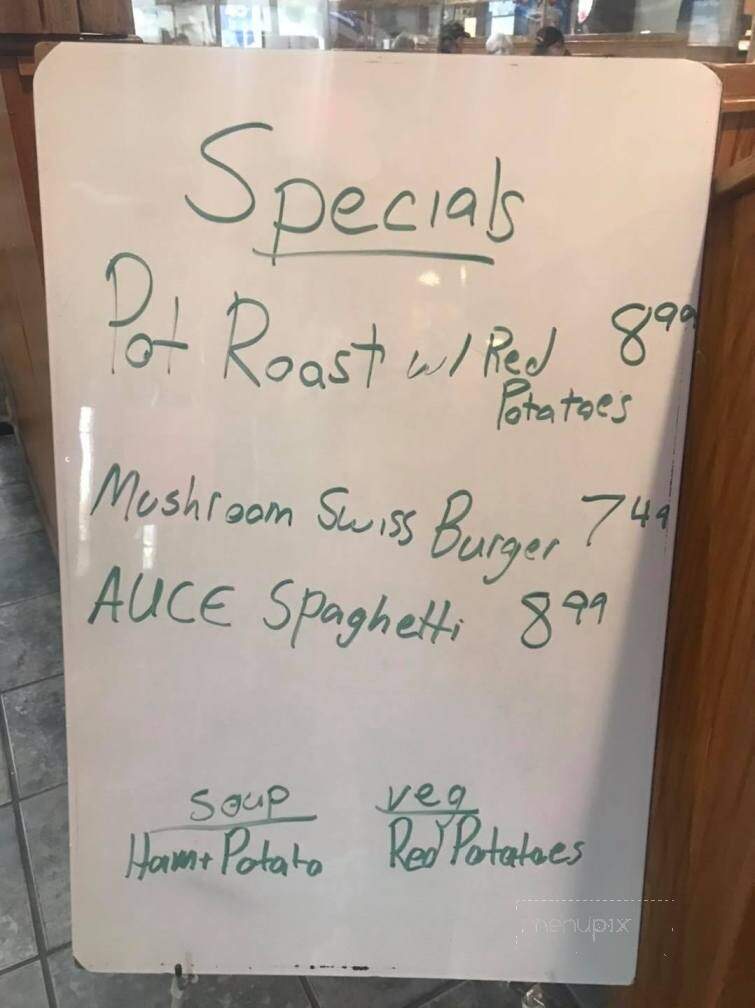 Specials
Pot Roast w/ Red 8.99
Potatoes
Mushroom Swiss Burger 7.49
AUCE Spaghetti 8.99
Soup veg
Ham + Potato Red Potatoes
menupix